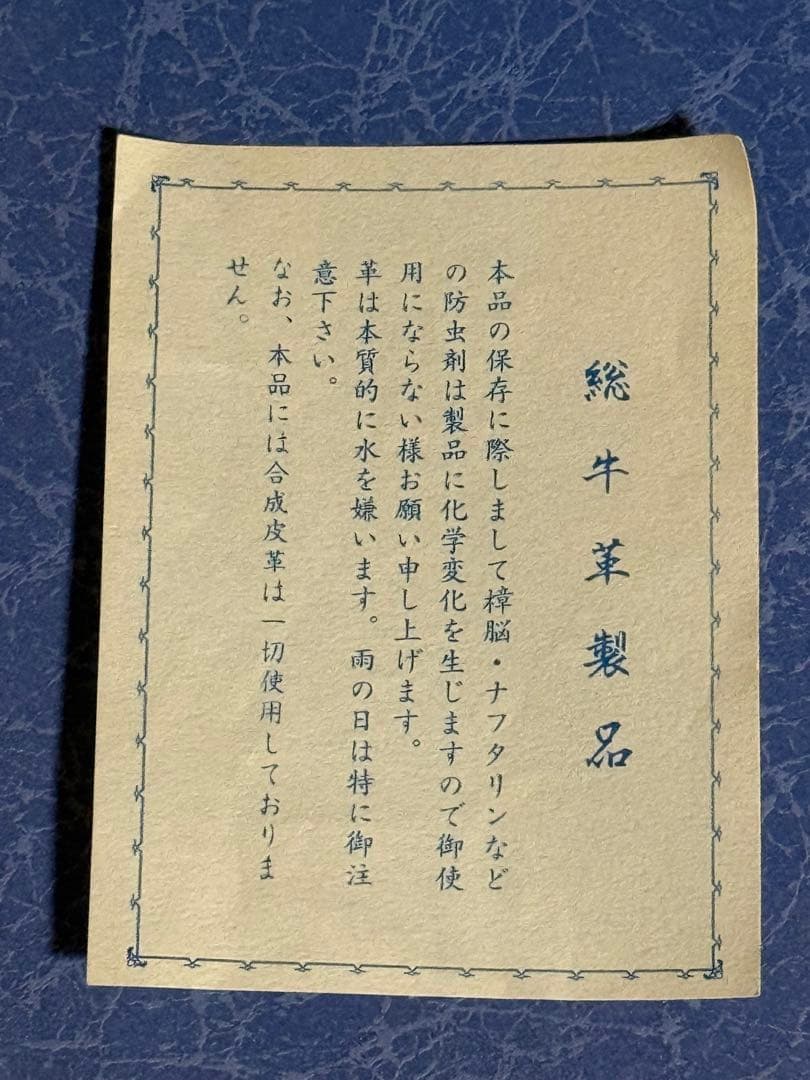 総牛革製品
本品の保存に際しまして樟脳・ナフタリンなど
の防虫剤は製品に化学変化を生じますので御使
用にならない様お願い申し上げます。
革は本質的に水を嫌います。雨の日は特に御注
意下さい。
なお、本品には合成皮革は一切使用しておりま
せん。